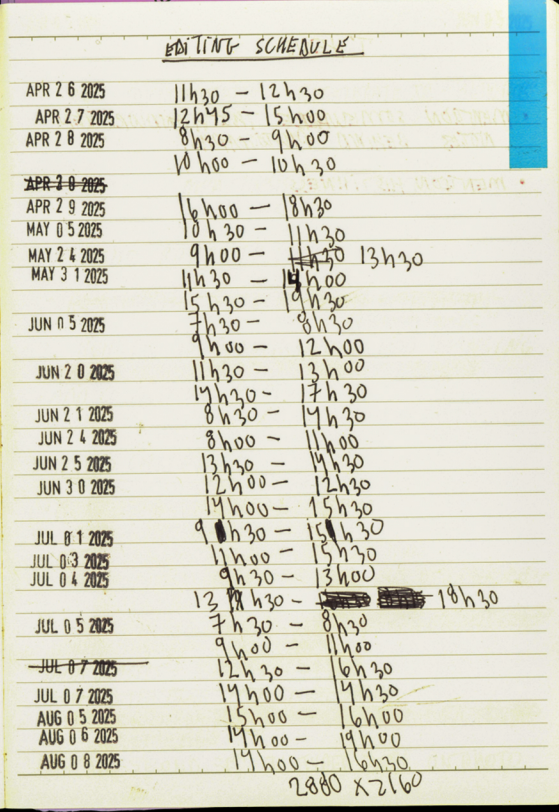 EDITING SCHEDULE
APR 26 2025 11h30 – 12h30
APR 27 2025 12h45 – 15h00
APR 28 2025 8h30 – 9h00
10h00 – 10h30
APR 28 2025
APR 29 2025 16h00 – 18h30
MAY 05 2025 10h30 – 11h30
MAY 24 2025 9h00 – 11h30 13h30
MAY 31 2025 11h30 – 14h00
15h30 – 19h30
JUN 05 2025 7h30 – 8h30
9h00 – 12h00
JUN 20 2025 11h30 – 13h00
14h30 – 17h30
JUN 21 2025 8h30 – 14h30
JUN 24 2025 8h00 – 11h00
JUN 25 2025 13h30 – 14h30
JUN 30 2025 12h00 – 12h30
14h00 – 15h30
JUL 01 2025 9h30 – 15h30
JUL 03 2025 11h00 – 15h30
JUL 04 2025 9h30 – 13h00
13h30 – 18h30
JUL 05 2025 7h30 – 8h30
9h00 – 11h00
JUL 07 2025 12h30 – 16h30
JUL 07 2025 14h00 – 14h30
AUG 05 2025 15h00 – 16h00
AUG 06 2025 14h00 – 19h00
AUG 08 2025 14h00 – 16h30
2880 X2160